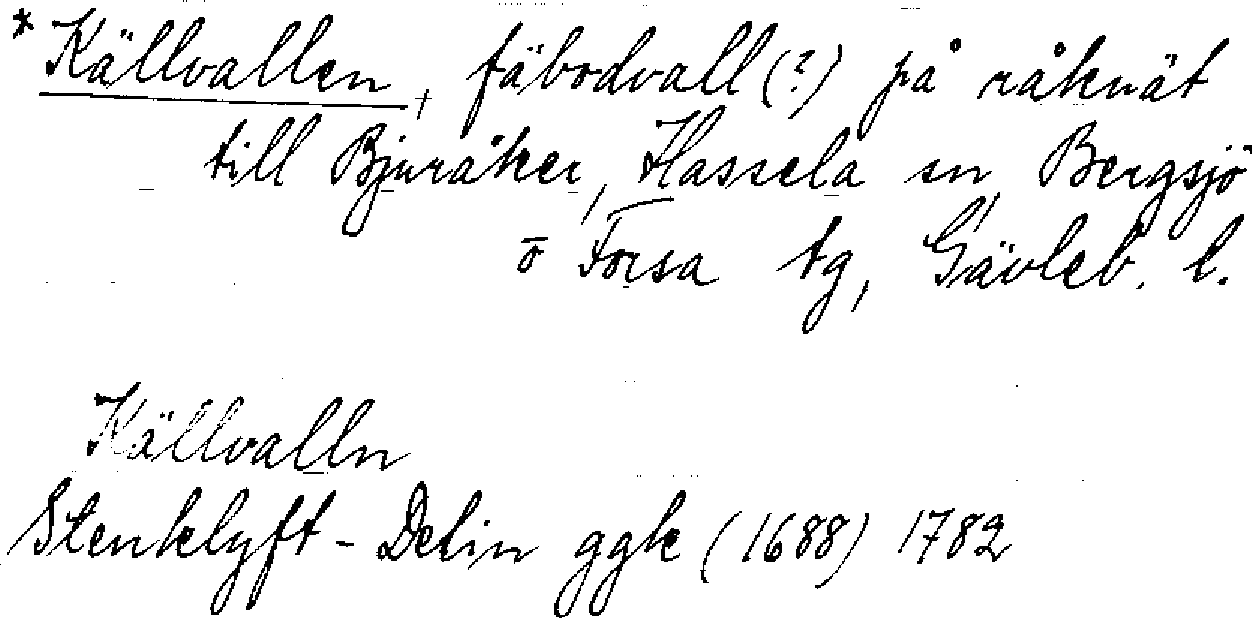 *Källvallen, fäbodvall (?) på råknät
till Bjuråker, Hassela sn, Bergsjö
o Forsa tg, Gävleb. l.
Källvalln
Stenklyft - Delin ggk (1688) 1782